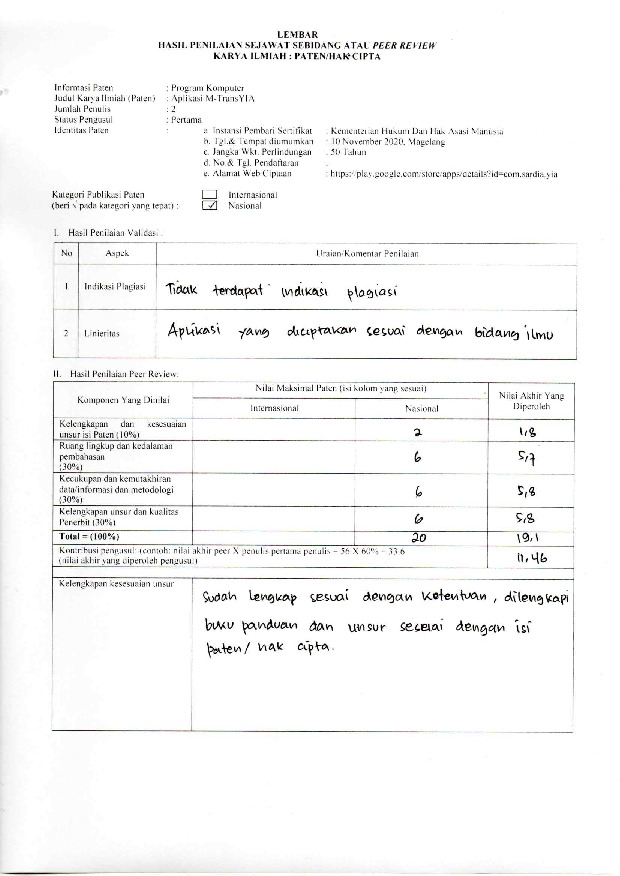 LEMBAR
HASIL PENILAIAN SEJAWAT SEBIDANG ATAU PEER REVIEW
KARYA ILMIAH : PATEN/HAK CIPTA
Informasi Paten : Program Komputer
Judul Karya Ilmiah (Paten) : Aplikasi M-TransYIA
Jumlah Penulis : 2
Status Pengusul : Pertama
Identitas Paten : a. Instansi Pembari Sertifikat : Kementerian Hukum Dan Hak Asasi Manusia
b. Tgl.& Tempat diumumkan : 10 November 2020, Magelang
c. Jangka Wkt. Perlindungan : 50 Tahun
d. No.& Tgl. Pendaftaran :
e. Alamat Web Ciptaan : https://play.google.com/store/apps/details?id=com.sardia.yia
Kategori Publikasi Paten Internasional
(beri √ pada kategori yang tepat) : ✓ Nasional
I. Hasil Penilaian Validasi :
No Aspek Uraian/Komentar Penilaian
1 Indikasi Plagiasi Tidak terdapat indikasi plagiasi
2 Linieritas Aplikasi yang diciptakan sesuai dengan bidang ilmu
II. Hasil Penilaian Peer Review:
Komponen Yang Dinilai Nilai Maksimal Paten (isi kolom yang sesuai) Nilai Akhir Yang Diperoleh
Internasional Nasional
Kelengkapan dan kesesuaian
unsur isi Paten (10%) 2 1,8
Ruang lingkup dan kedalaman
pembahasan 6 5,7
(30%)
Kecukupan dan kemutakhiran
data/informasi dan metodologi 6 5,8
(30%)
Kelengkapan unsur dan kualitas
Penerbit (30%) 6 5,8
Total = (100%) 20 19,1
Kontribusi pengusul: (contoh: nilai akhir peer X penulis pertama penulis = 56 X 60% = 33.6
(nilai akhir yang diperoleh pengusul) 11,46
Kelengkapan kesesuaian unsur
Sudah lengkap sesuai dengan ketentuan, dilengkapi
buku panduan dan unsur sesuai dengan isi
paten/ hak cipta.